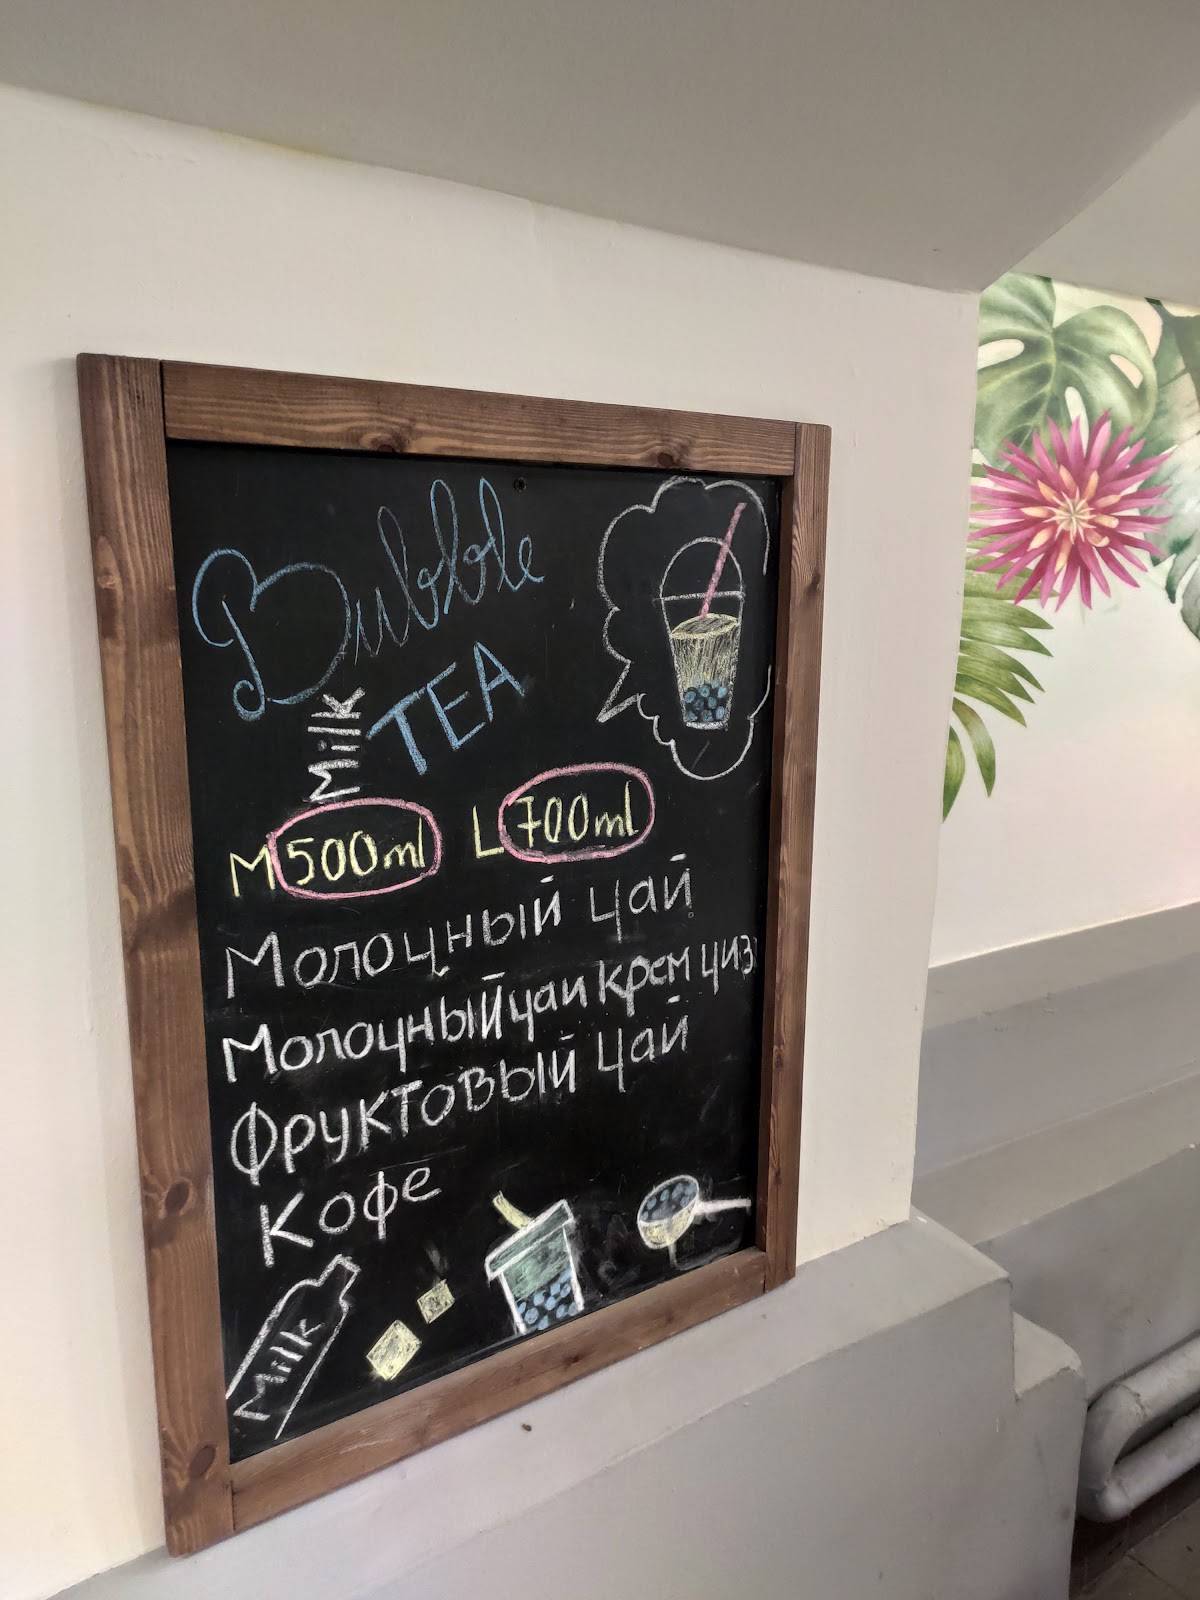 Bubble
Milk TEA
M 500ml L 700ml
Молочный чай
Молочный чай крем чиз
Фруктовый чай
Кофе
Milk